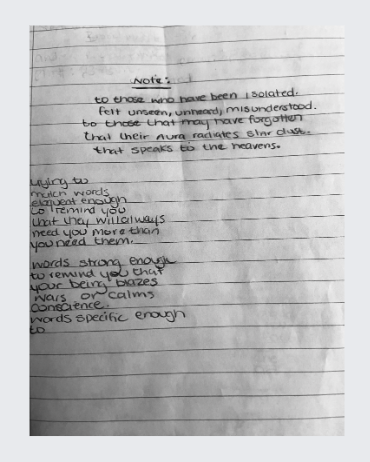 Note:
to those who have been isolated.
felt unseen, unheard, misunderstood.
to those that may have forgotten
that their Aura radiates star dust.
that speaks to the heavens.
trying to
match words
eloquent enough
to remind you
that they will always
need you more than
you need them.
words strong enough
to remind you that
your being blazes
wars or calms
conscience.
words specific enough
to